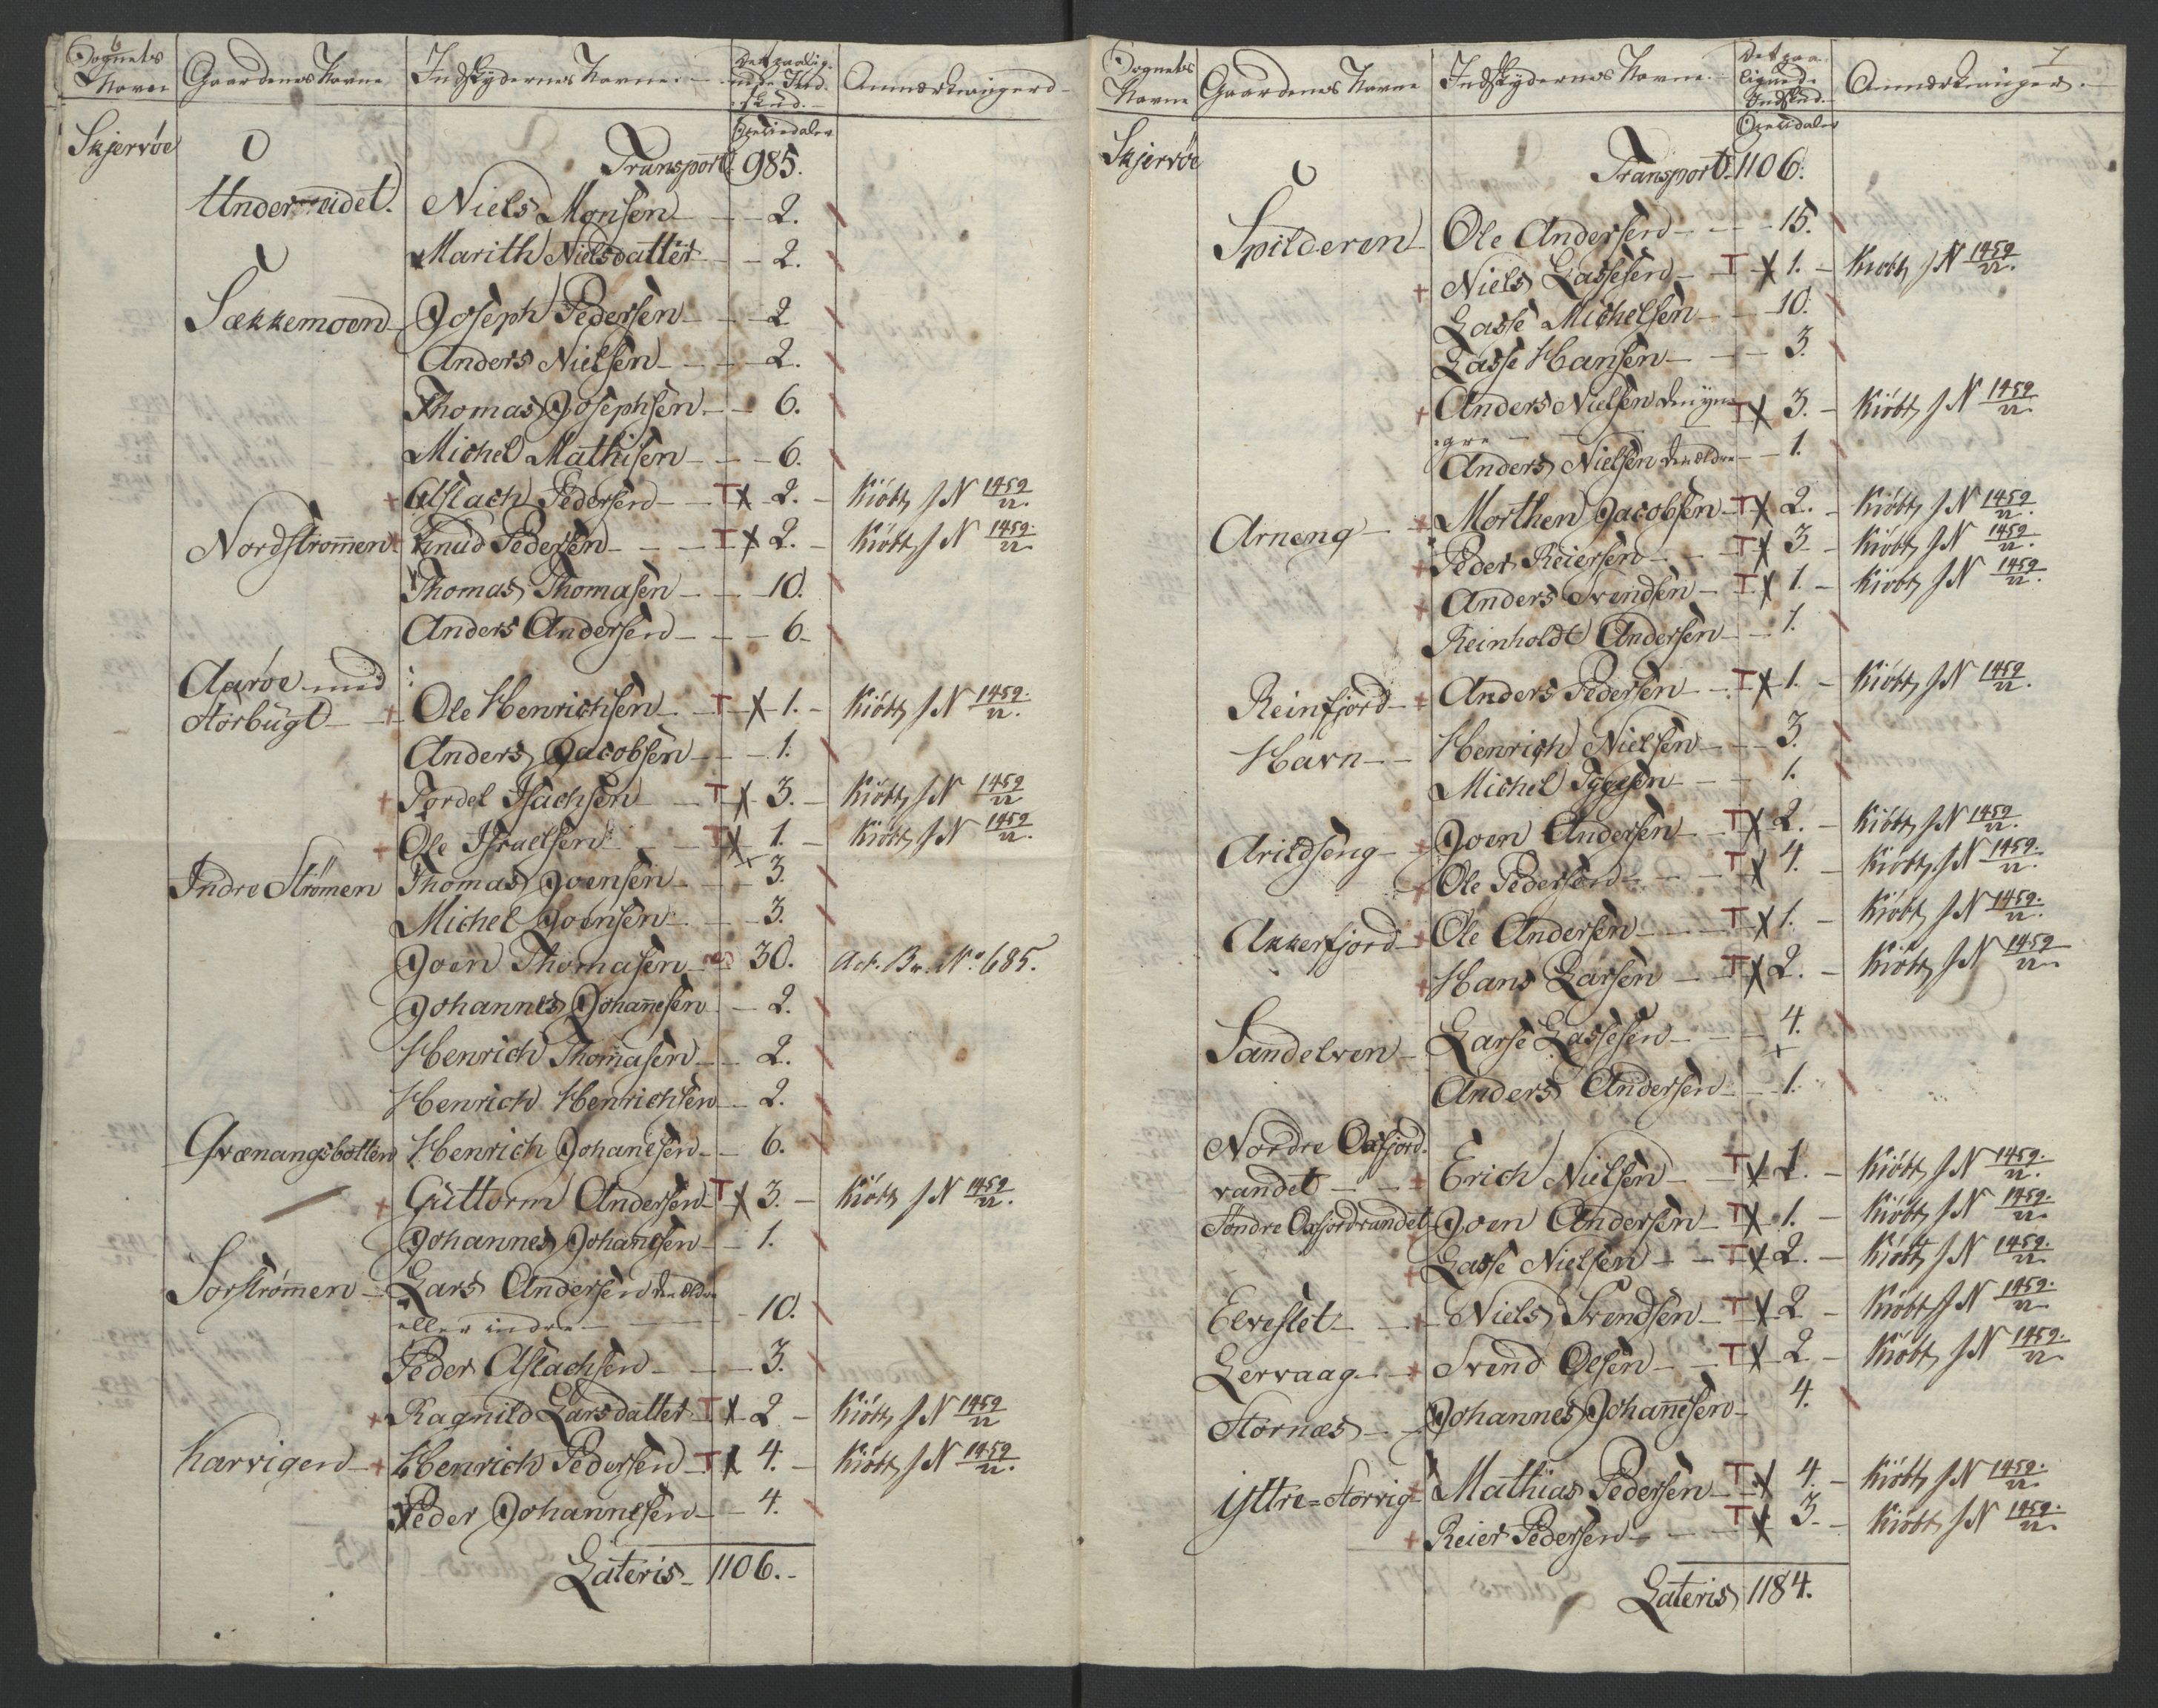 6
Sognets Navn Gaardenes Navne Indskydernes Navne. Det paalignede Indskud. Anmærkninger
Speciedaler
Skjervøe Transport. 985.
Undereidet. Niels Monsen 2.
Marith Nielsdatter 2.
Sækkemoen Joseph Pedersen 2
Anders Nielsen 2.
Thomas Josephsen 6.
Michel Mathisen 6.
+ Aslach Pedersen T X 2. Kiöbt J N 1459/22.
Nordstrømmen + Knud Pedersen T X 2. Kiöbt J N 1459/22
Thomas Thomasen 10.
Anders Andersen 6
Aarøe med
Storbugt + Ole Henrichsen T X 1. Kiöbt J N 1459/22.
Anders Jacobsen 1.
+ Tordel Isachsen T X 3. Kiöbt J N 1459/22
+ Ole Israelsen T X 1. Kiöbt J N 1459/22.
Indre Strømen Thomas Joensen 3.
Michel Joensen 3.
Joen Thomasen 30. Act. Br. No. 685.
Johannes Johannesen 2.
Henrich Thomasen 2.
Henrich Henrichsen 2.
Qvænangsbotten Henrich Johanesen 6.
+ Guttorm Andersen T X 3. Kiöbt J N 1459/22.
Johannes Johannesen 1.
Sorstrømmen Lars Andersen den ældre
eller indre 10.
Peder Aslachsen 3.
+ Ragnild Larsdatter T X 2 Kiöbt J N 1459/22
Karvigen + Henrich Pedersen T X 4. Kiöbt J N 1459/22.
Peder Johannesen 4.
Lateris 1106.
7
Sognets Navne Gaardenes Navne Indskydernes Navne. Det paalignede Indskud. Anmærkninger.
Speciedaler
Skjervøe Transport. 1106.
Spilderen Ole Andersen 15.
+ Niels Lassesen T X 1. Kiöbt J N 1459/22.
Lasse Michelsen 10.
Lasse Hansen 3.
+ Anders Nielsen den yn- T X 3. Kiöbt J N 1459/22.
gre
Anders Nielsen den ældre 1.
Arneng + Morthen Jacobsen T X 2. Kiöbt J N 1459/22.
+ Peder Reiersen T X 3 Kiöbt J N 1459/22.
+ Anders Svendsen T X 1. Kiöbt J N 1459/22.
Reinholdt Andersen 1.
Reinfjord + Anders Pedersen T X 1. Kiöbt J N 1459/22.
Havn Henrich Nielsen 3.
Michel Iggesen 1.
Arildseng + Joen Andersen T X 2. Kiöbt J N 1459/22.
+ Ole Pedersen T X 4. Kiöbt J N 1459/22.
Akkerfjord + Ole Andersen T X 1. Kiöbt J N 1459/22.
+ Hans Larsen T X 2. Kiöbt J N 1459/22
Sandelven Larse Lassesen 4.
Anders Andersen 1.
Nordre Oxfjord-
vandet + Erich Nielsen T X 2. Kiöbt J N 1459/22.
Søndre Oxfjordvandet + Joen Andersen T X 1. Kiöbt J N 1459/22.
+ Lasse Nielsen T X 2. Kiöbt J N 1459/22
Elveslet + Niels Svendsen T X 2 Kiöbt J N 1459/22
Lervaag + Svend Olsen T X 2 Kiöbt J N 1459/22
Stornæs Johannes Johannesen 4.
Yttre=Storvig + Mathias Pedersen T X 4. Kiöbt J N 1459/22.
+ Reier Pedersen T X 3. Kiöbt J N 1459/22.
Lateris 1184.